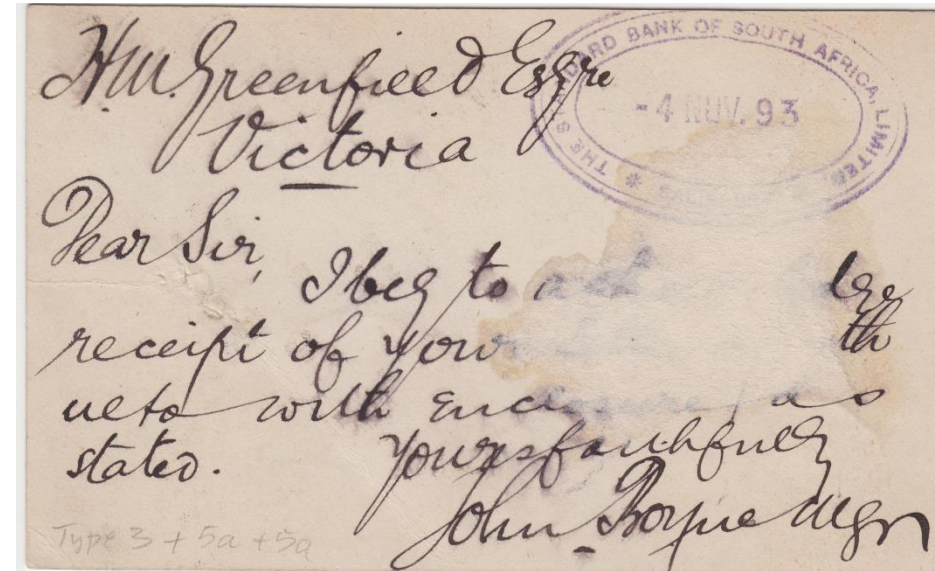 H.M. Greenfield Esqre
Victoria
THE STANDARD BANK OF SOUTH AFRICA, LIMITED
-4 NOV. 93
Dear Sir,
I beg to
receipt of your th
ulto with enclosure as
stated.
Yours faithfully
John Mgr
Type 3 + 5a + 5a